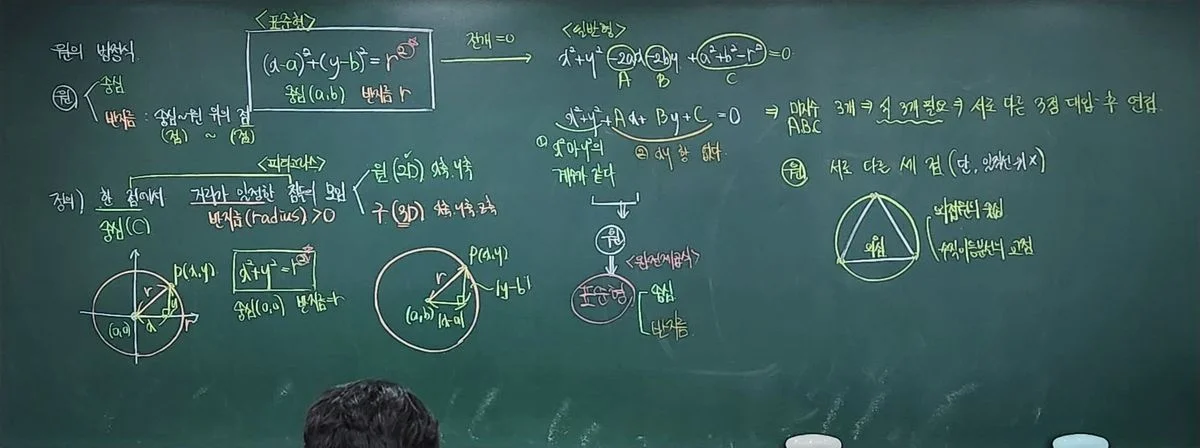 원의 방정식
<표준형>
(x-a)²+(y-b)²=r²
중심(a,b) 반지름 r
전개=0
원
중심
반지름 : 중심~원 위의 점
(점) ~ (점)
<피타고라스>
정의) 한 점에서 거리가 일정한 점들의 모임
중심(C) 반지름(radius)>0
원(2D) x축,y축
구(3D) x축,y축,z축
P(x,y)
r
y
x
(0,0)
r
x²+y²=r²
중심(0,0) 반지름=r
P(x,y)
r
|y-b|
(a,b)
|x-a|
<일반형>
x²+y²-2ax-2by+a²+b²-r²=0
A B C
x²+y²+Ax+By+C=0
① x²마y²의
계수가 같다
② xy 항 없다
원
<완전제곱식>
표준형
중심
반지름
⇒ 미지수 3개 ⇒ 식 3개 필요 ⇒ 서로 다른 3점 대입 후 연립
ABC
원 서로 다른 세 점 (단, 일직선 위 X)
외심
외접원의 중심
수직이등분선의 교점